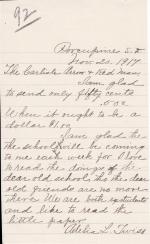 92
Porcupine S.D.
Nov. 20. 1917
The Carlisle Arrow & Red Man
I am glad
to send only fifty cents
.50¢
When it ought to be a
dollar $1.00
I am glad the
the school will be coming
to me each week for I love
to read the doings of the
dear old school, tho the dear
old friends are no more
there. We are both
and like to read the
little paper.
Adelia L. Twiss